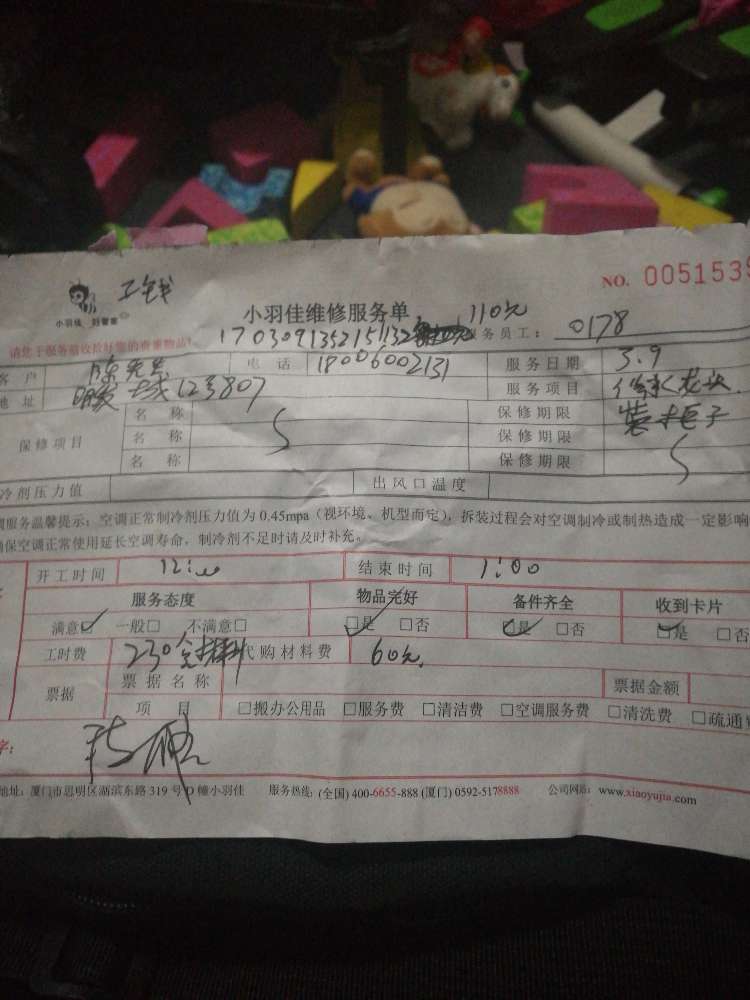 工钱
NO. 0051539
小羽佳 好管家
小羽佳维修服务单
110元
请您于服务前收拾好您的贵重物品!
170309135215132
服务员工: 0178
客户 陈先生 电话 18006002131 服务日期 3.9
地址 城123807 服务项目
保修项目
名称 保修期限
名称 保修期限
名称 保修期限
冷剂压力值 出风口温度
调服务温馨提示:空调正常制冷剂压力值为 0.45mpa(视环境、机型而定),拆装过程会对空调制冷或制热造成一定影响
确保空调正常使用延长空调寿命,制冷剂不足时请及时补充。
开工时间 12:00 结束时间 1:00
服务态度 物品完好 备件齐全 收到卡片
满意☑ 一般□ 不满意□ ☑是 □否 ☑是 □否 ☑是 □否
工时费 230含材料 代购材料费 60元
票据 票据名称 票据金额
项目 □搬办公用品 □服务费 □清洁费 □空调服务费 □清洗费 □疏通
字:
地址:厦门市思明区湖滨东路 319 号 D 幢小羽佳 服务热线:(全国) 400-6655-888 (厦门) 0592-5178888 公司网站:www.xiaoyujia.com